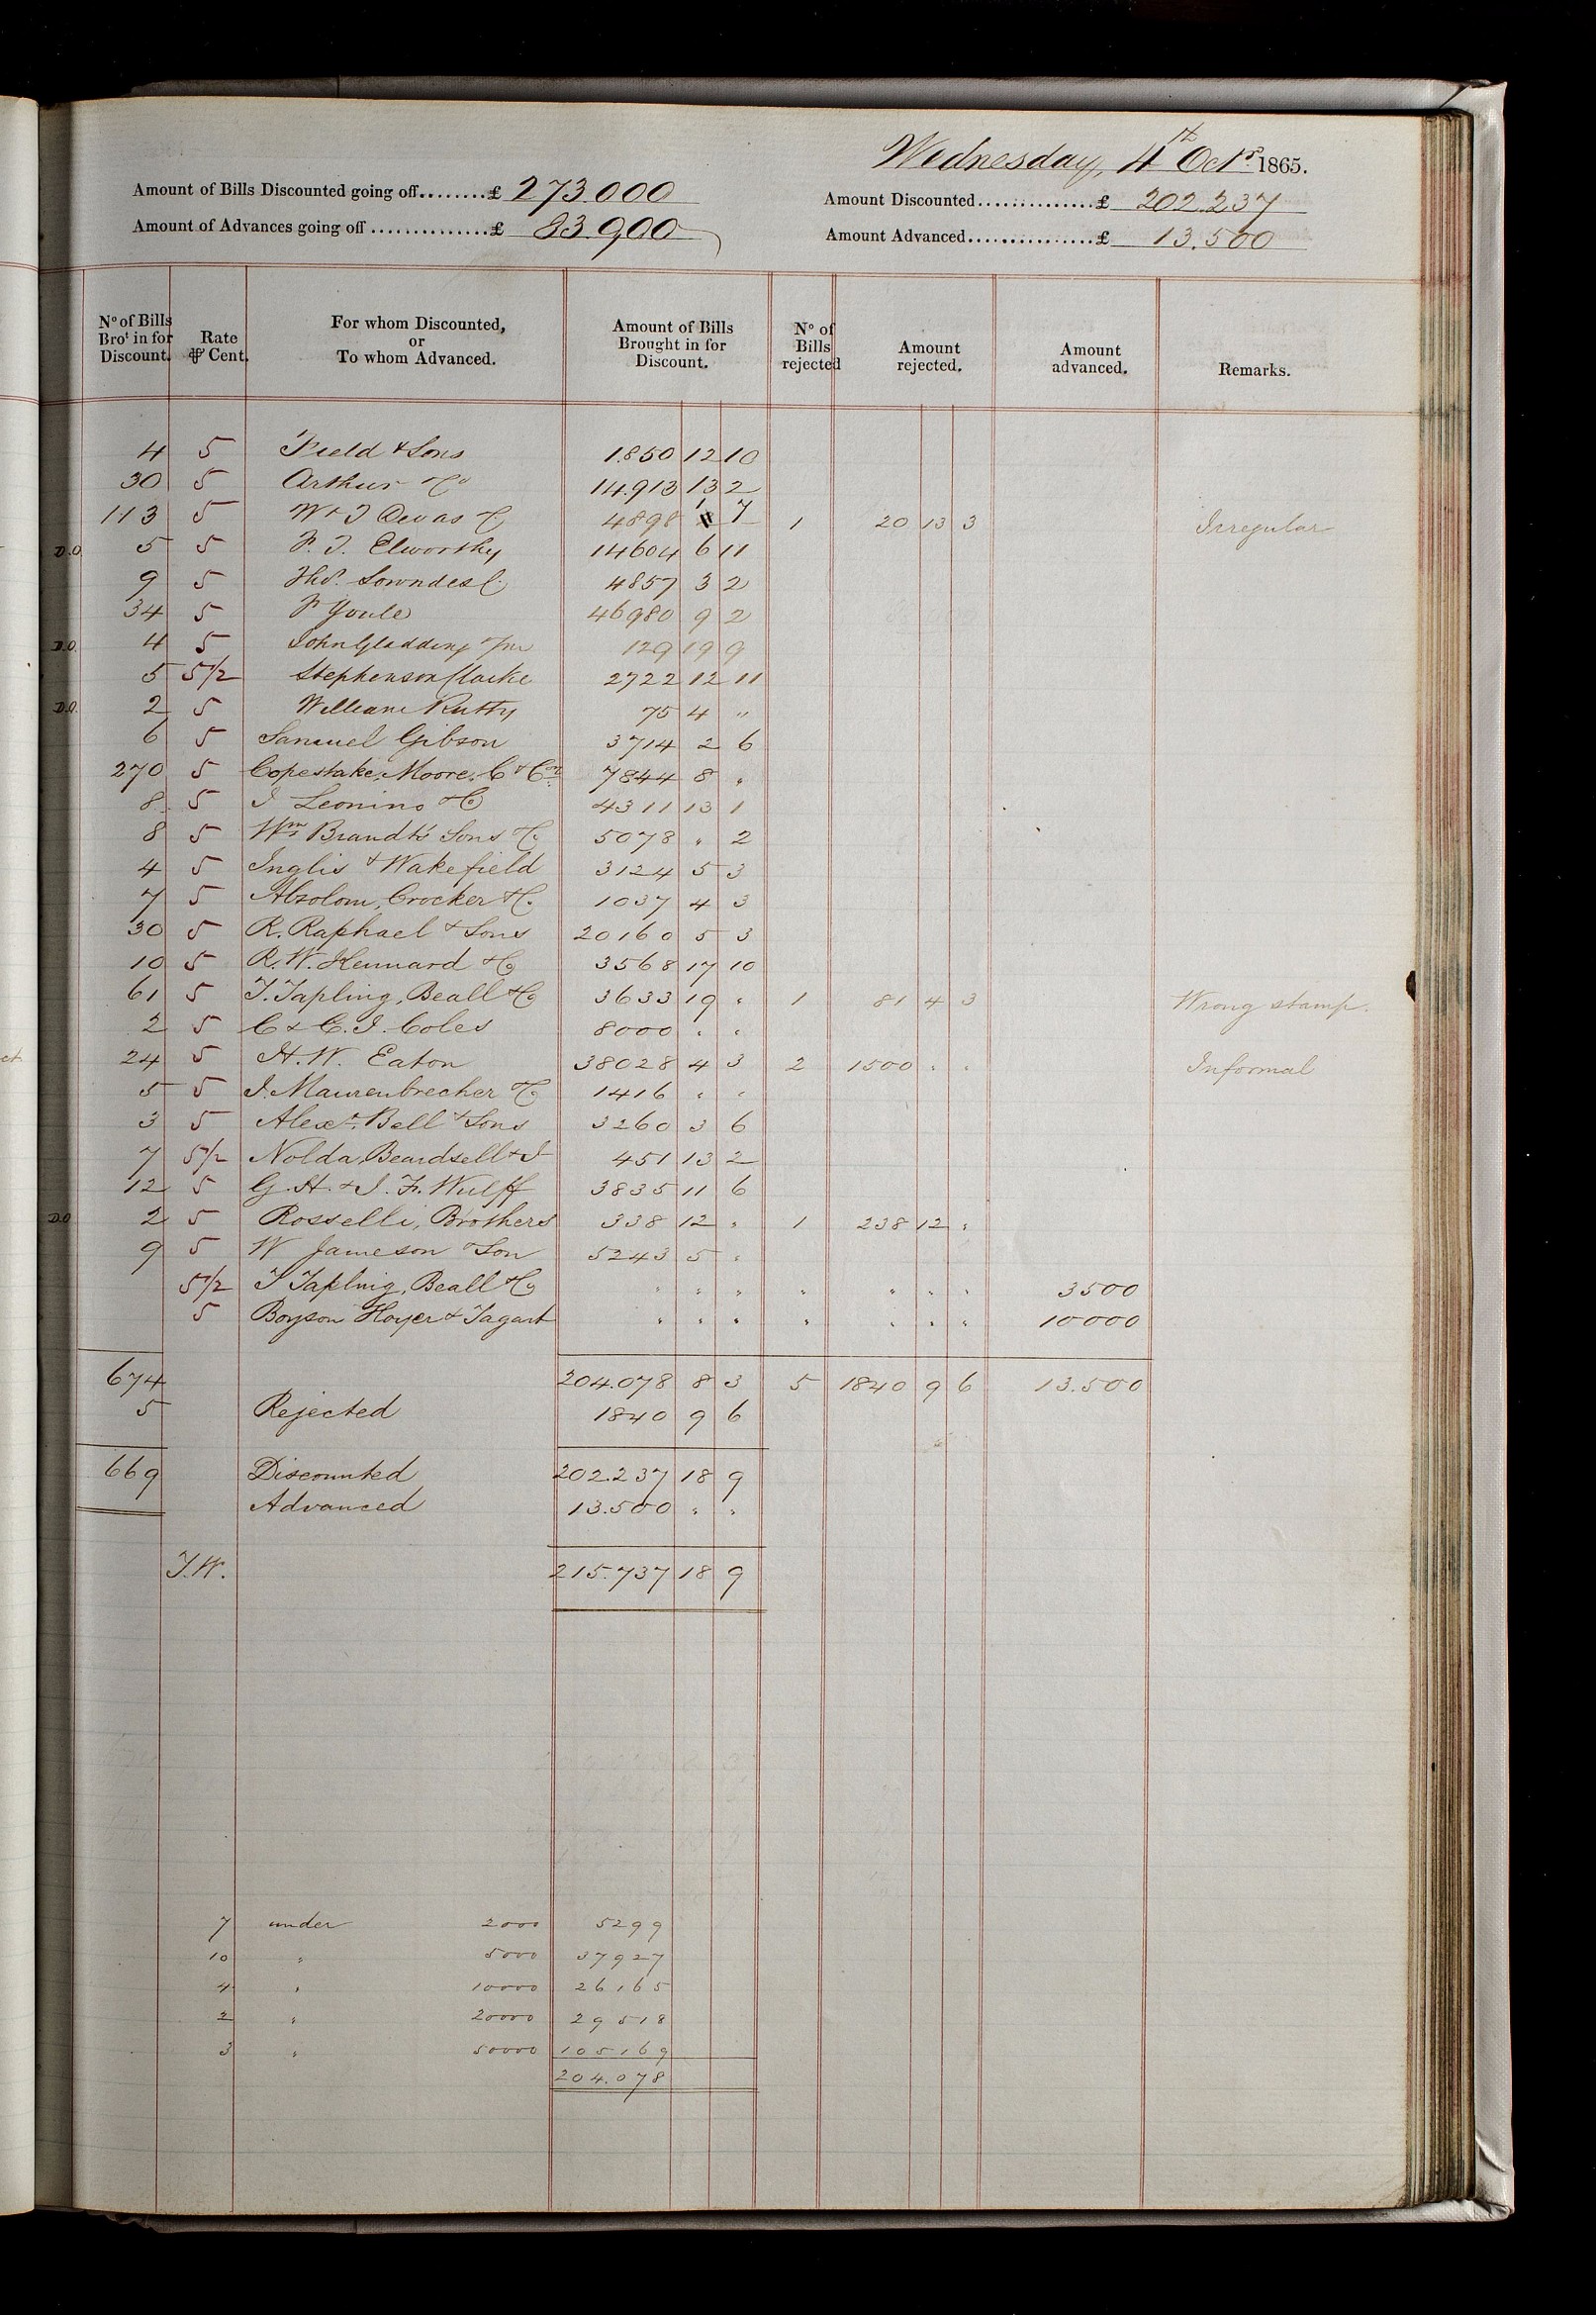 Wednesday, 4th Octr 1865.
Amount of Bills Discounted going off........£ 273.000
Amount Discounted..............£ 202.237
Amount of Advances going off..............£ 83.900
Amount Advanced...............£ 13.500
No of Bills Brot in for Discount. Rate ⅌ Cent. For whom Discounted, or To whom Advanced. Amount of Bills Brought in for Discount. No of Bills rejected Amount rejected. Amount advanced. Remarks.
4 5 Field & Sons 1.850 12 10
30 5 Arthur & Co 14.913 13 2
113 5 W & T Devas & Co 4898 1 7 1 20 13 3 Irregular
D.O. 5 5 F. T. Elworthy 14604 6 11
9 5 Thos. Lowndes & Co 4857 3 2
34 5 F Youle 46980 9 2
D.O. 4 5 John Gladding Jnr 129 19 9
5 5½ Stephenson Clarke 2722 12 11
D.O. 2 5 William Rutty 75 4 "
6 5 Samuel Gibson 3714 2 6
270 5 Copestake, Moore, C & Co 7844 8 "
8 5 I Leonino & Co 4311 13 1
8 5 Wm Brandt's Sons & Co 5078 " 2
4 5 Inglis & Wakefield 3124 5 3
7 5 Absolom, Crocker & Co 1037 4 3
30 5 R. Raphael & Sons 20160 5 3
10 5 R. W. Kennard & Co 3568 17 10
61 5 T. Tapling, Beall & Co 3633 19 " 1 81 4 3 Wrong stamp.
2 5 C & E. J. Coles 8000 " "
24 5 H. W. Eaton 38028 4 3 2 1500 " " Informal
5 5 I. Maurenbrecher & Co 1416 " "
3 5 Alexr. Bell & Sons 3260 3 6
7 5½ Nolda, Beardsell & I 451 13 2
12 5 G. H. & J. F. Wulff 3835 11 6
D.O. 2 5 Rosselli, Brothers 338 12 " 1 238 12 "
9 5 W Jameson & Son 5243 5 "
5½ T Tapling, Beall & Co " " " " " " " 3500
5 Boyson Hoyer & Tagart " " " " " " " 10000
674 204.078 8 3 5 1840 9 6 13.500
5 Rejected 1840 9 6
669 Discounted 202.237 18 9
Advanced 13.500 " "
T.W. 215.737 18 9
7 under 2000 5299
10 " 5000 37927
4 " 10000 26165
2 " 20000 29518
3 " 50000 105169
204.078